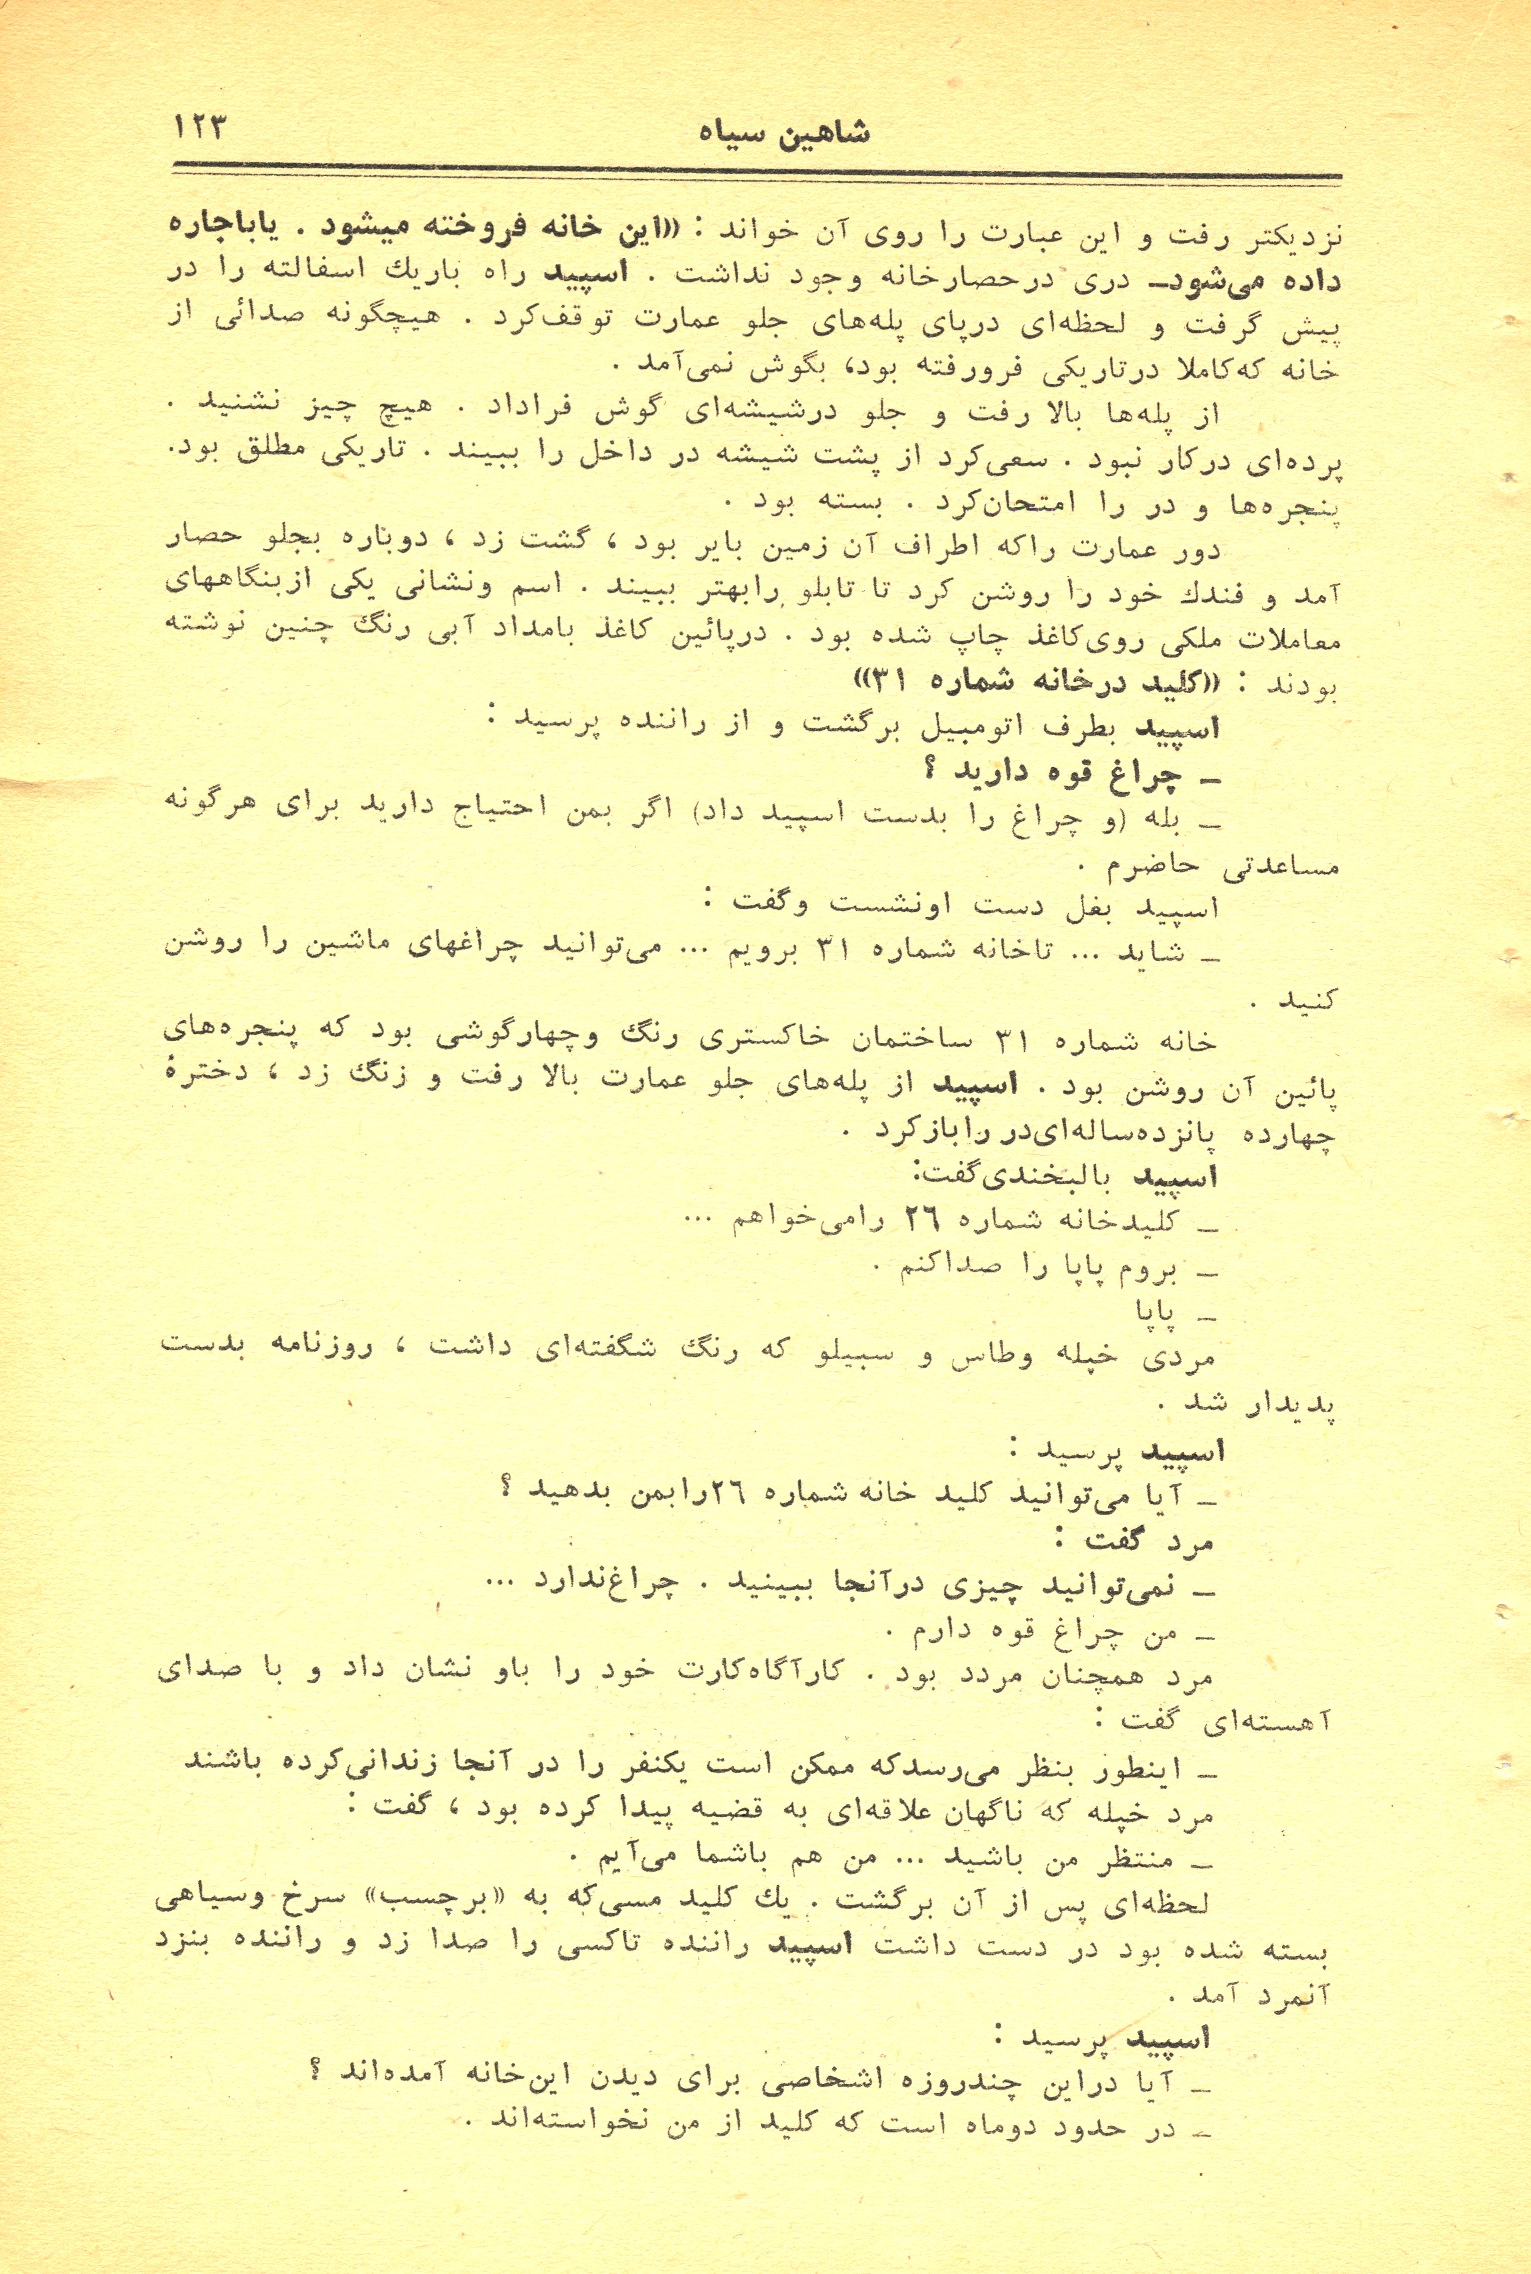 شاهین سیاه
۱۲۳
نزدیکتر رفت و این عبارت را روی آن خواند : «این خانه فروخته میشود . یاباجاره
داده می‌شود_ دری درحصارخانه وجود نداشت . اسپید راه باریك اسفالته را در
پیش گرفت و لحظه‌ای درپای پله‌های جلو عمارت توقف‌کرد . هیچگونه صدائی از
خانه که‌کاملا درتاریکی فرورفته بود، بگوش نمی‌آمد .
از پله‌ها بالا رفت و جلو درشیشه‌ای گوش فراداد . هیچ چیز نشنید .
پرده‌ای درکار نبود . سعی‌کرد از پشت شیشه در داخل را ببیند . تاریکی مطلق بود.
پنجره‌ها و در را امتحان‌کرد . بسته بود .
دور عمارت راکه اطراف آن زمین بایر بود ، گشت زد ، دوباره بجلو حصار
آمد و فندك خود را روشن کرد تا تابلو رابهتر ببیند . اسم ونشانی یکی ازبنگاههای
معاملات ملکی روی‌کاغذ چاپ شده بود . درپائین کاغذ بامداد آبی رنگ چنین نوشته
بودند : «کلید درخانه شماره ۳۱»
اسپید بطرف اتومبیل برگشت و از راننده پرسید :
_ چراغ قوه دارید ؟
_ بله (و چراغ را بدست اسپید داد) اگر بمن احتیاج دارید برای هرگونه
مساعدتی حاضرم .
اسپید بغل دست اونشست وگفت :
_ شاید ... تاخانه شماره ۳۱ برویم ... می‌توانید چراغهای ماشین را روشن
کنید .
خانه شماره ۳۱ ساختمان خاکستری رنگ وچهارگوشی بود که پنجره‌های
پائین آن روشن بود . اسپید از پله‌های جلو عمارت بالا رفت و زنگ زد ، دخترهٔ
چهارده پانزده‌ساله‌ای‌در رابازکرد .
اسپید بالبخندی‌گفت:
_ کلیدخانه شماره ۲٦ رامی‌خواهم ...
_ بروم پاپا را صداکنم .
_ پاپا
مردی خپله وطاس و سبیلو که رنگ شگفته‌ای داشت ، روزنامه بدست
پدیدار شد .
اسپید پرسید :
_ آیا می‌توانید کلید خانه شماره ۲٦رابمن بدهید ؟
مرد گفت :
_ نمی‌توانید چیزی درآنجا ببینید . چراغ‌ندارد ...
_ من چراغ قوه دارم .
مرد همچنان مردد بود . کارآگاه‌کارت خود را باو نشان داد و با صدای
آهسته‌ای گفت :
_ اینطور بنظر می‌رسدکه ممکن است یکنفر را در آنجا زندانی‌کرده باشند
مرد خپله که ناگهان علاقه‌ای به قضیه پیدا کرده بود ، گفت :
_ منتظر من باشید ... من هم باشما می‌آیم .
لحظه‌ای پس از آن برگشت . یك کلید مسی‌که به «برچسب» سرخ وسیاهی
بسته شده بود در دست داشت اسپید راننده تاکسی را صدا زد و راننده بنزد
آنمرد آمد .
اسپید پرسید :
_ آیا دراین چندروزه اشخاصی برای دیدن این‌خانه آمده‌اند ؟
_ در حدود دوماه است که کلید از من نخواسته‌اند .